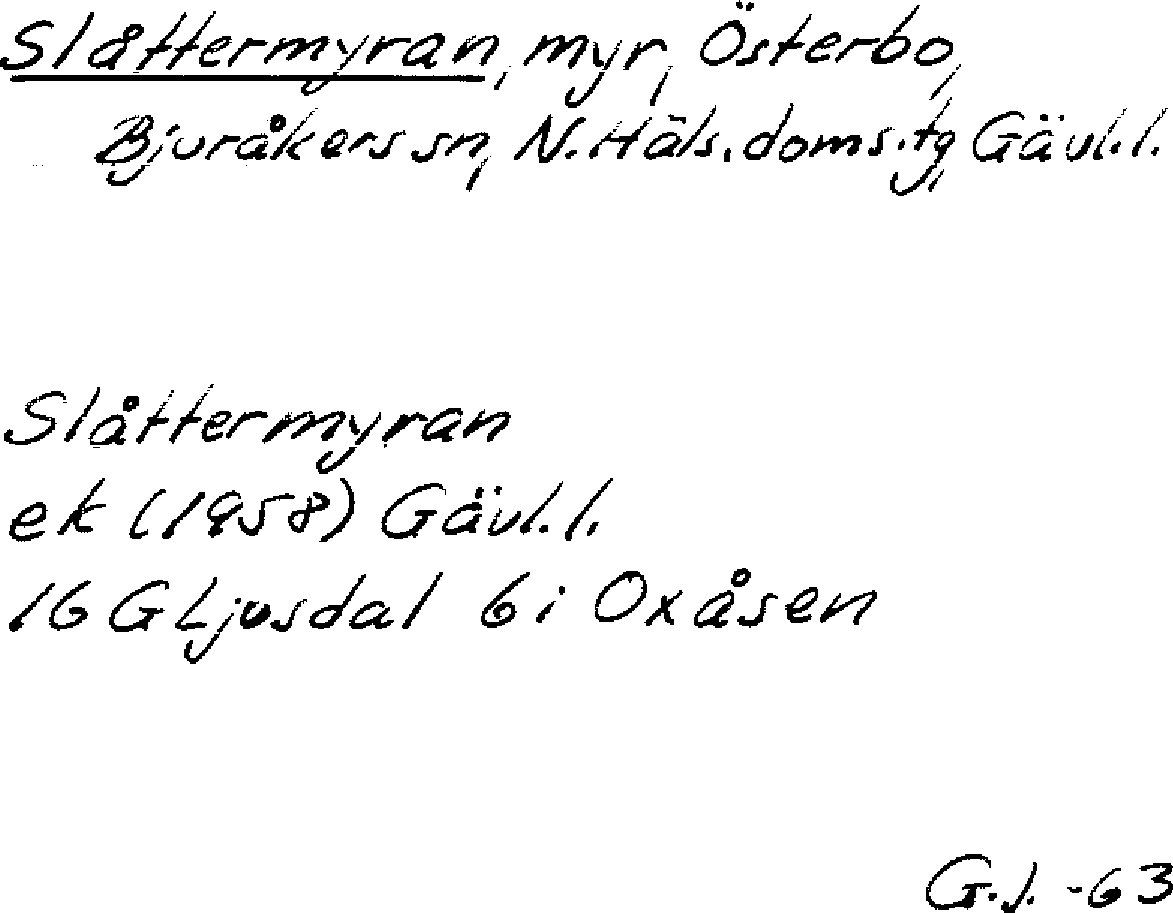 Slåttermyran, myr, Österbo,
Bjuråkers sn, N. Häls. doms.tg, Gävl. l.
Slåttermyran
ek (1958) Gävl. l.
16 G Ljusdal 6 i Oxåsen
G.J. -63